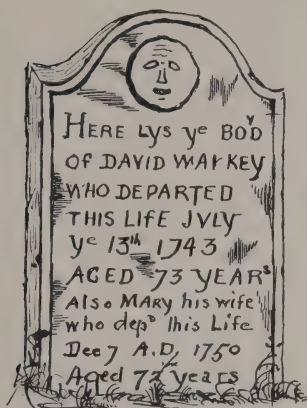 HERE LYS ye BODY
OF DAVID WARKEY
WHO DEPARTED
THIS LIFE JVLY
ye 13th 1743
AGED 73 YEARs
Also MARY his wife
who depD This Life
Dec 7 A.D. 1750
Aged 72 years